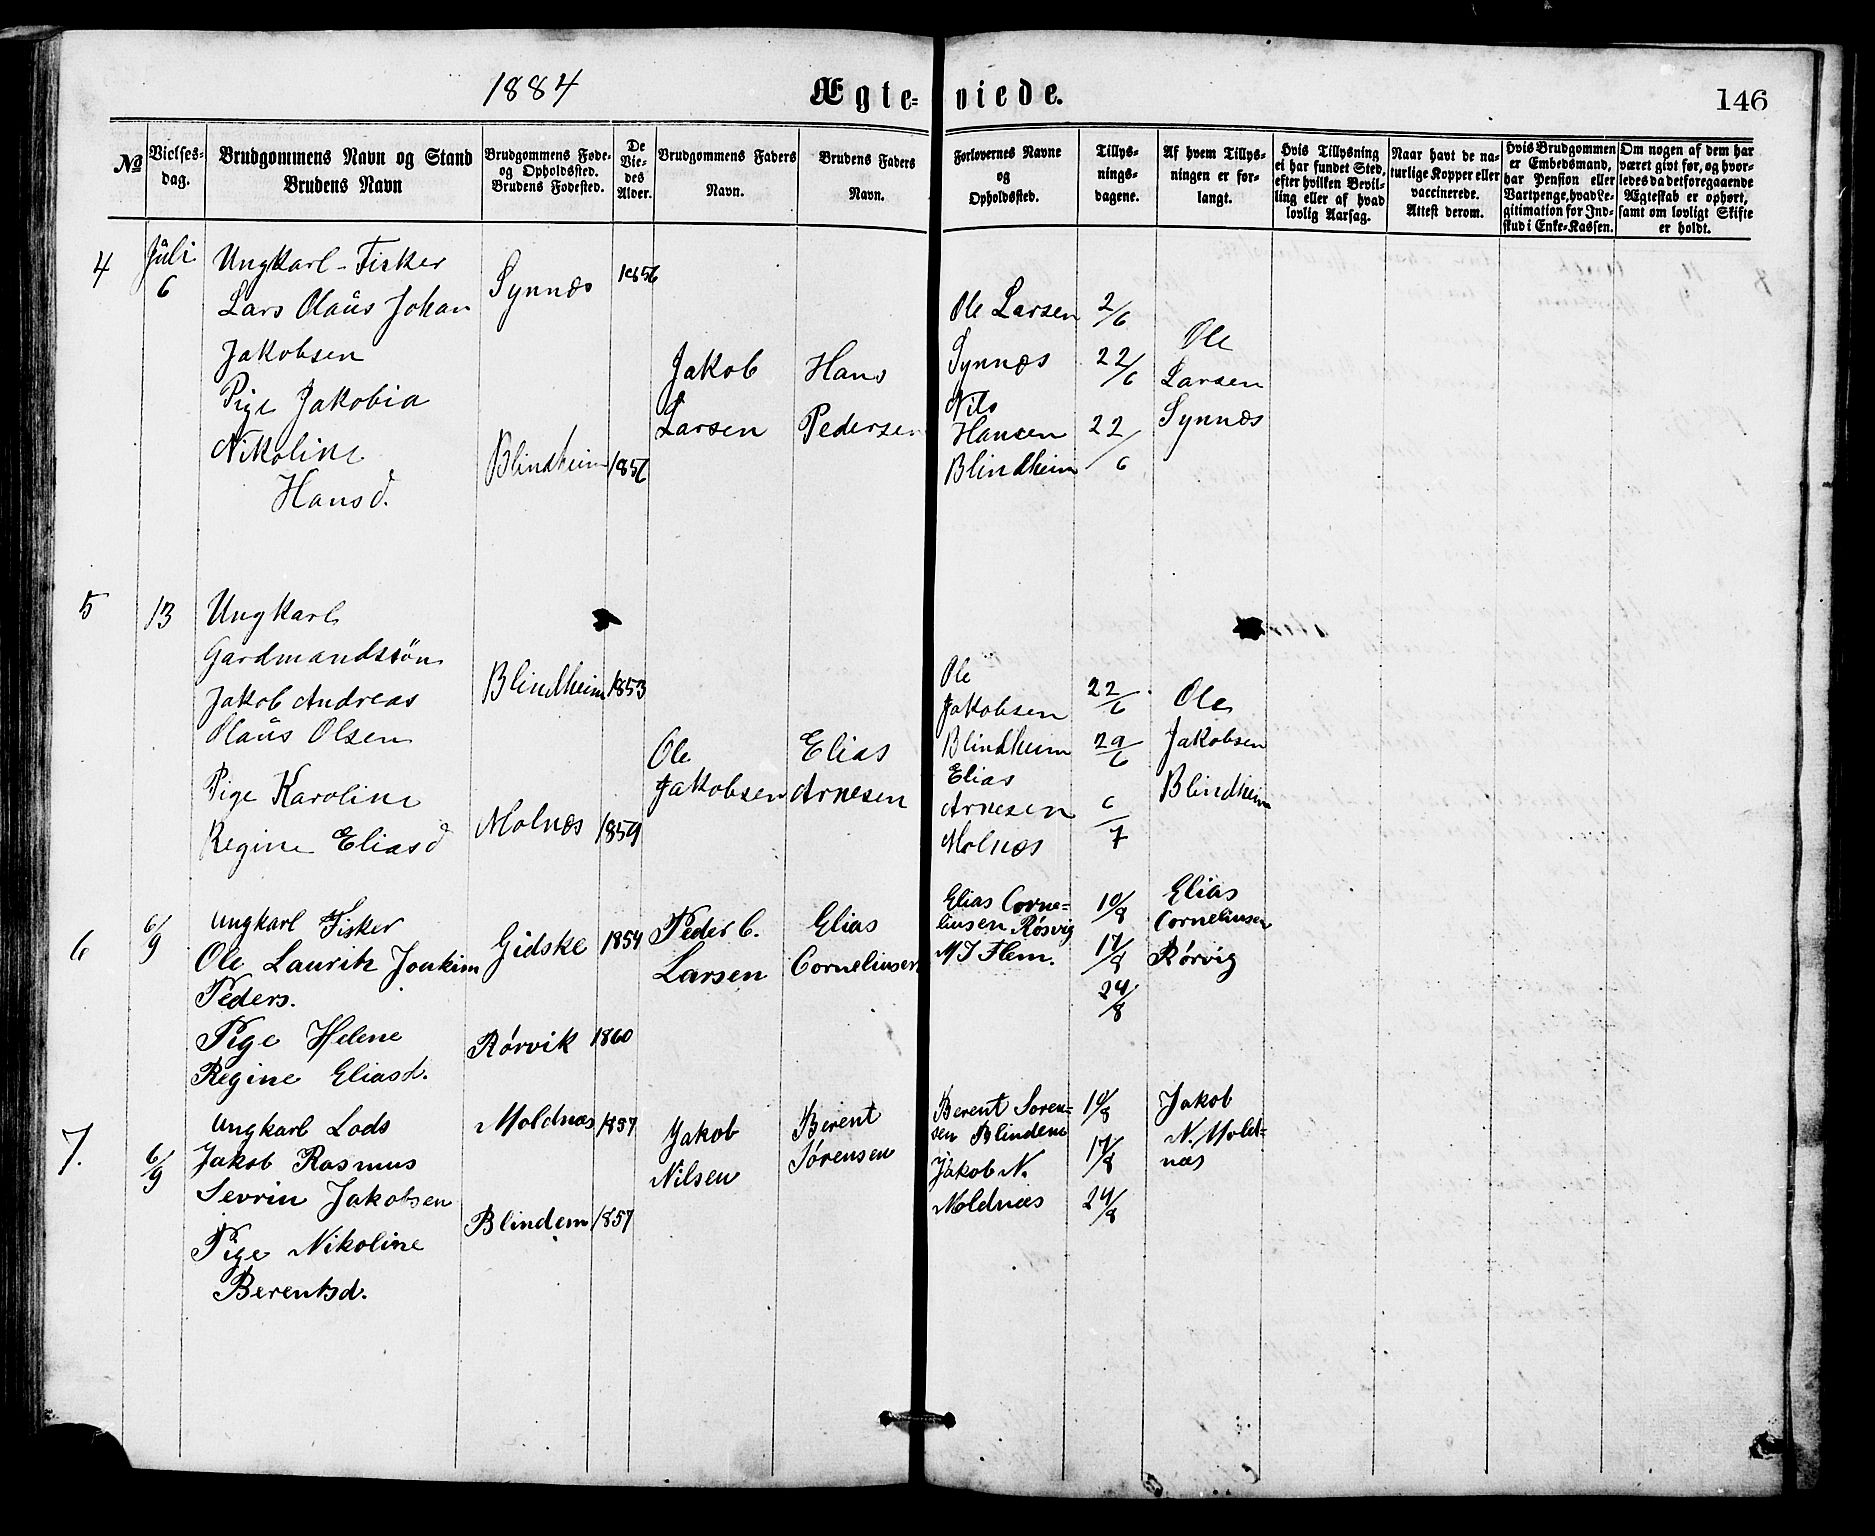 1884
Ægte-viede.
146
No
Vielses-
dag.
Brudgommens Navn og Stand
Brudens Navn
Brudgommens Føde-
og Opholdssted.
Brudens Fødested.
De
Vie-
des
Alder.
Brudgommens Faders
Navn.
Brudens Faders
Navn.
Forlovernes Navne
og
Opholdssted.
Tillys-
nings-
dagene.
Af hvem Tillys-
ningen er for-
langt.
Hvis Tillysning
ei har fundet Sted,
efter hvilken Bevil-
ling eller af hvad
lovlig Aarsag.
Naar havt de na-
turlige Kopper eller
vaccinerede.
Attest derom.
Hvis Brudgommen
er Embedsmand,
har Pension eller
Vartpenge, hvad Le-
gitimation for Ind-
skud i Enke-Kassen.
Om nogen af dem har
været givt før, og hvor-
ledes da det foregaaende
Ægteskab er ophørt,
samt om lovligt Skifte
er holdt.
4
Juli
6
Ungkarl-Fisker
Lars Olaüs Johan
Jakobsen
Pige Jakobia
Nikoline
Hansd.
Synnæs
Blindheim
1856
1856
Jakob
Larsen
Hans
Pedersen
Ole Larsen
Synnæs
Nils
Hansen
Blindheim
2/6
22/6
22/6
Ole
Larsen
Synnæs
5
13
Ungkarl
Gardmandssön
Jakob Andreas
Olaüs Olsen
Pige Karoline
Regine Eliasd
Blindheim
Molnæs
1853
1859
Ole
Jakobsen
Elias
Arnesen
Ole
Jakobsen
Blindheim
Elias
Arnesen
Molnæs
22/6
29/6
6/7
Ole
Jakobsen
Blindheim
6
6/9
Ungkarl Fisker
Ole Lauritz Joakim
Peders.
Pige Helene
Regine Eliasd.
Gidske
Rørvik
1854
1860
Peder C.
Larsen
Elias
Corneliusen
Elias Corne-
liusen Røsvig
M J Flem.
10/8
17/8
24/8
Elias
Corneliusen
Rørvig
7.
6/9
Ungkarl Lods
Jakob Rasmus
Sevrin Jakobsen
Pige Nikoline
Berentsd.
Moldnæs
Blindem
1857
1857
Jakob
Nilsen
Berent
Sørensen
Berent Soren-
sen Blindem
Jakob N.
Moldnæs
10/8
17/8
24/8
Jakob
N. Mold-
næs